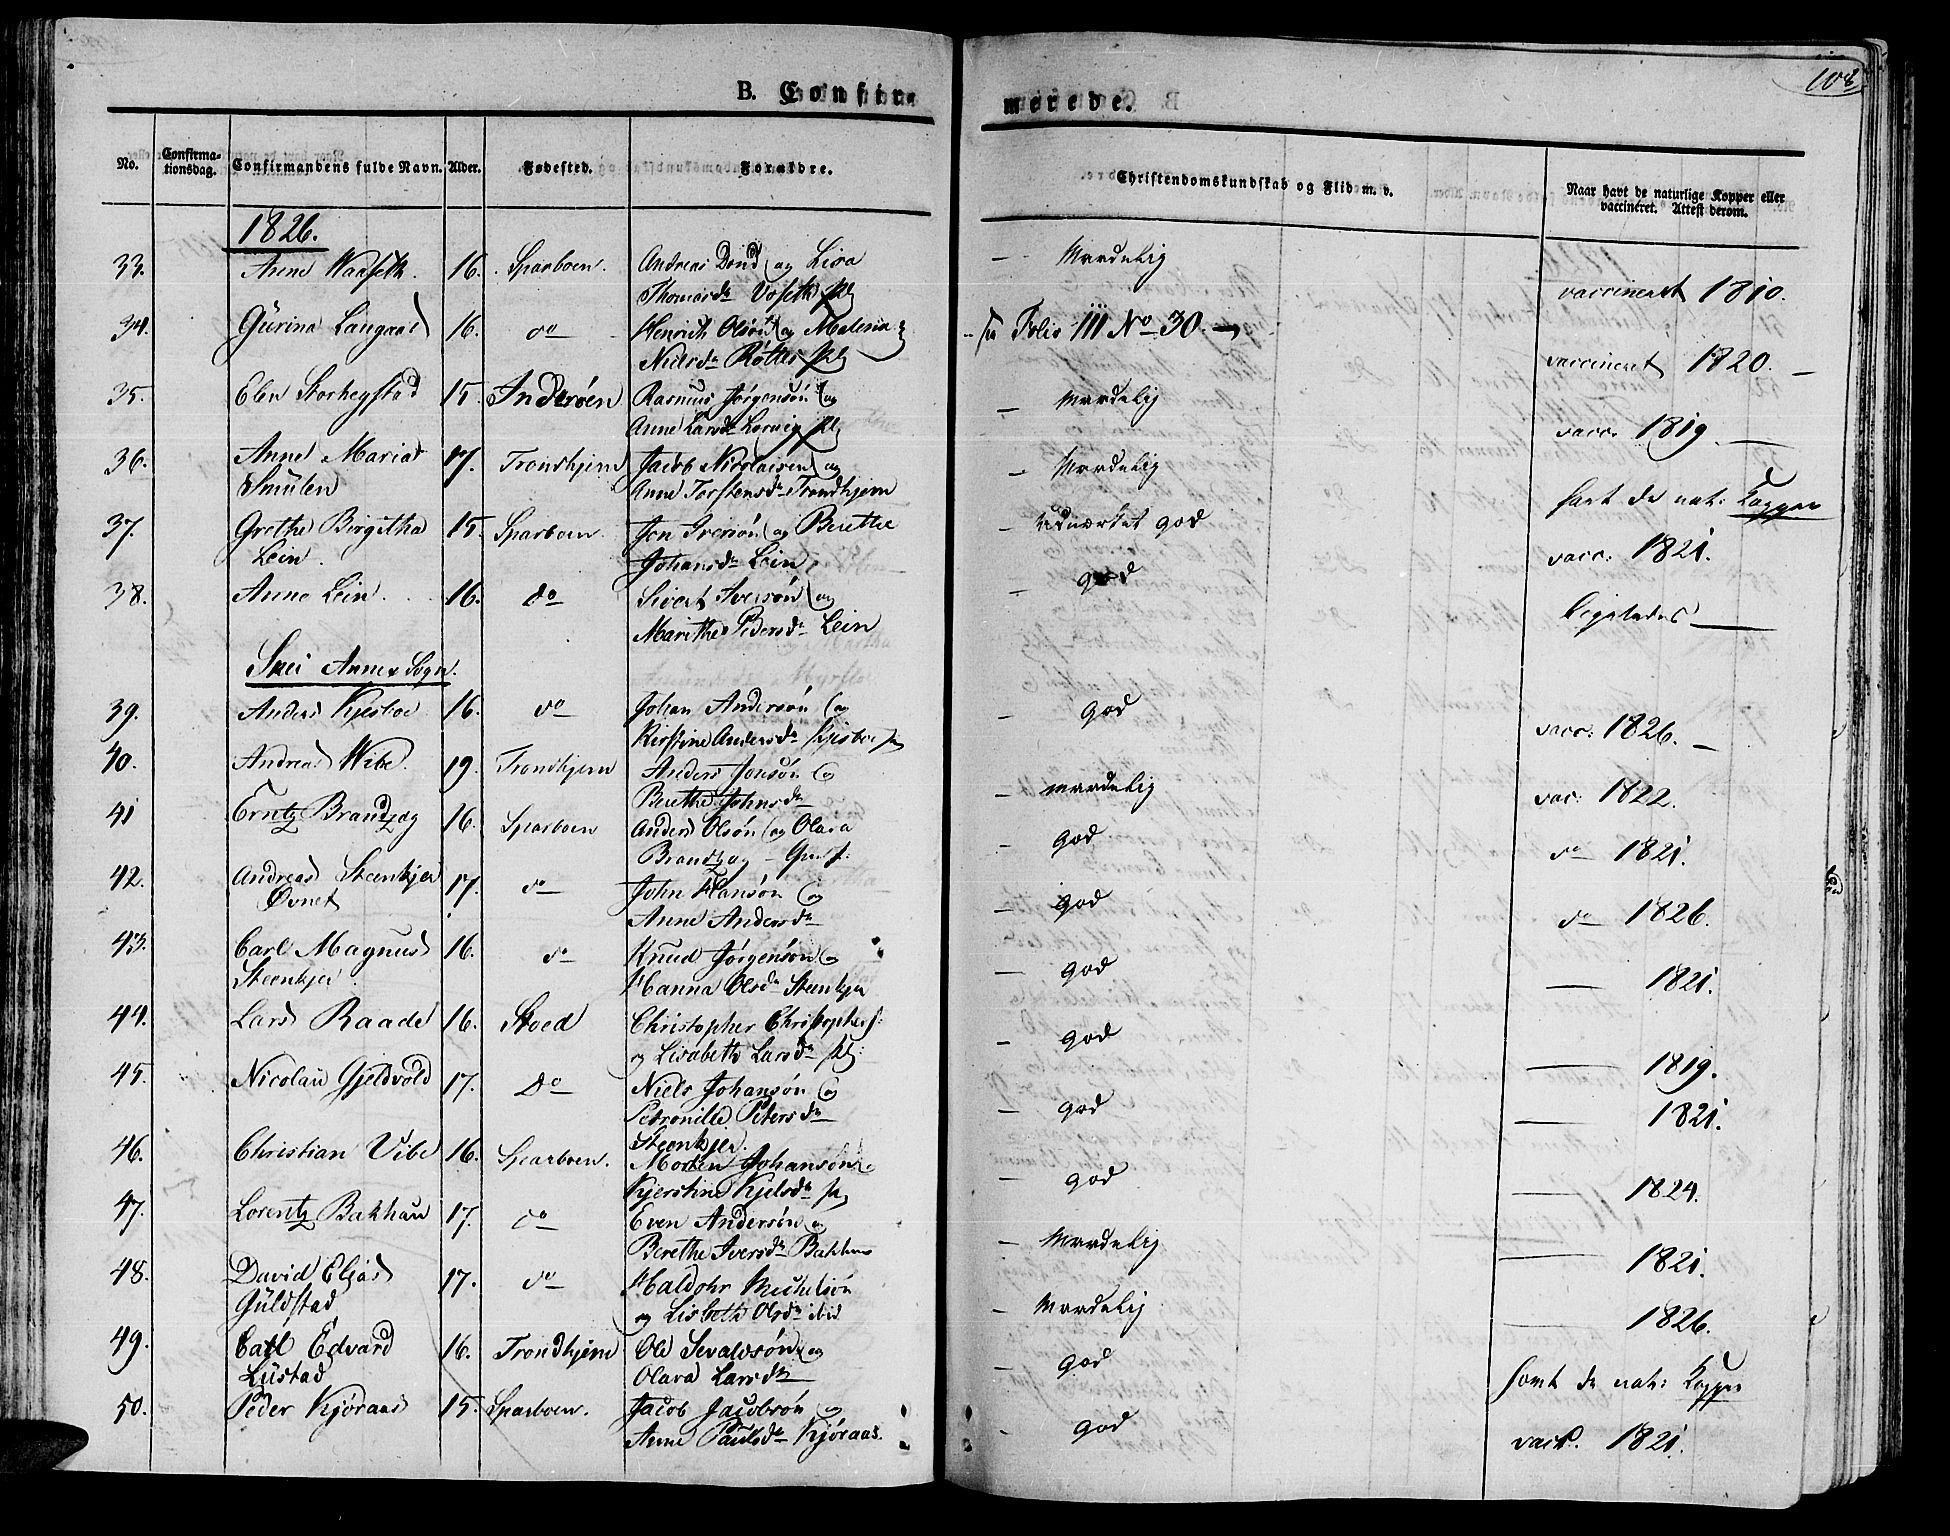 108
B. Confir-
merede.
No.
Confirma-
tionsdag.
Confirmandens fulde Navn.
Alder.
Fødested.
Forældre.
Christendomskundskab og Flid m. v.
Naar havt de naturlige Kopper eller
vaccineret. Attest derom.
1826.
33. Anne Waaseth. 16. Sparboen. Andreas Dond og Lisa
Thomasdr Voseth
— Maadelig vaccineret 1810.
34. Gurina Langaas 16. do Henrich Olsön og Malena
Nielsdr Rötte
Folio 111 No 30. vaccineret 1820. —
35. Elen Storhegstad 15. Inderöen Rasmus Jörgensön og
Anne Larsdr
— Maadelig vacc: 1819. —
36. Anne Maria 17. Trondhjem Jacob Nicolaisen og
Smulen Anne Torstensdr Trondhjem
— Maadelig havt de nat: Kopper
37. Grethe Birgitha 15. Sparboen Jon Iversön og Berethe
Lein. Johansdr Lein
— Udmærket god vacc: 1821.
38. Anne Lein. 16. do Sivert Iversön og
Marithe Pedersdr Lein
— god ligeledes —
Snei Annex Sogn.
39. Anders Kjesboe 16. do Johan Andersön og
Kirstine Andersdr Kjesboe
— god vacc: 1826. —
40. Andreas Wibe. 19. Trondhjem Anders Jonsön og
Berethe Johnsdr
— maadelig vac: 1822.
41 Erntz Brandzæg 16. Sparboen Anders Olsön og Olava
Brandzæg
— god do 1821.
42. Andreas Steenkjer 17. do John Hansön og
Övnet Anne Andersdr
— god do 1826.
43. Carl Magnus 16. do Knud Jörgensön og
Steenkjer. Hanna Olsdr Steenkjer
— god — 1821.
44. Lars Raade 16. Stoed Christopher Christophers:
og Lisabeth Larsdr
— god — 1819.
45. Nicolau Gjeldvold 17. Do Niels Johansön og
Petronille Petersdr
Steenkjer.
— god — 1821.
46. Christian Vibe 16. Sparboen. Morten Johansön
Kjerstine Kjelsdr
— god — 1824.
47. Lorentz Bakhau 17. do Even Andersön og
Berethe Iversdr Bakhau
— Maadelig — 1821.
48. David Elias 17. do Haldohr Michelsön
Guldstad og Lisbeth Olsdr ibid
— Maadelig 1826.
49. Carl Edvard 16. Trondhjem Ole Sevaldsön og
Lustad Olava Larsdr
— god havt de nat: Kopper
50. Peder Kjöraas 15. Sparboen. Jacob Jacobsön og
Anne Paulsdr Kjöraas.
— god vacc. 1821.